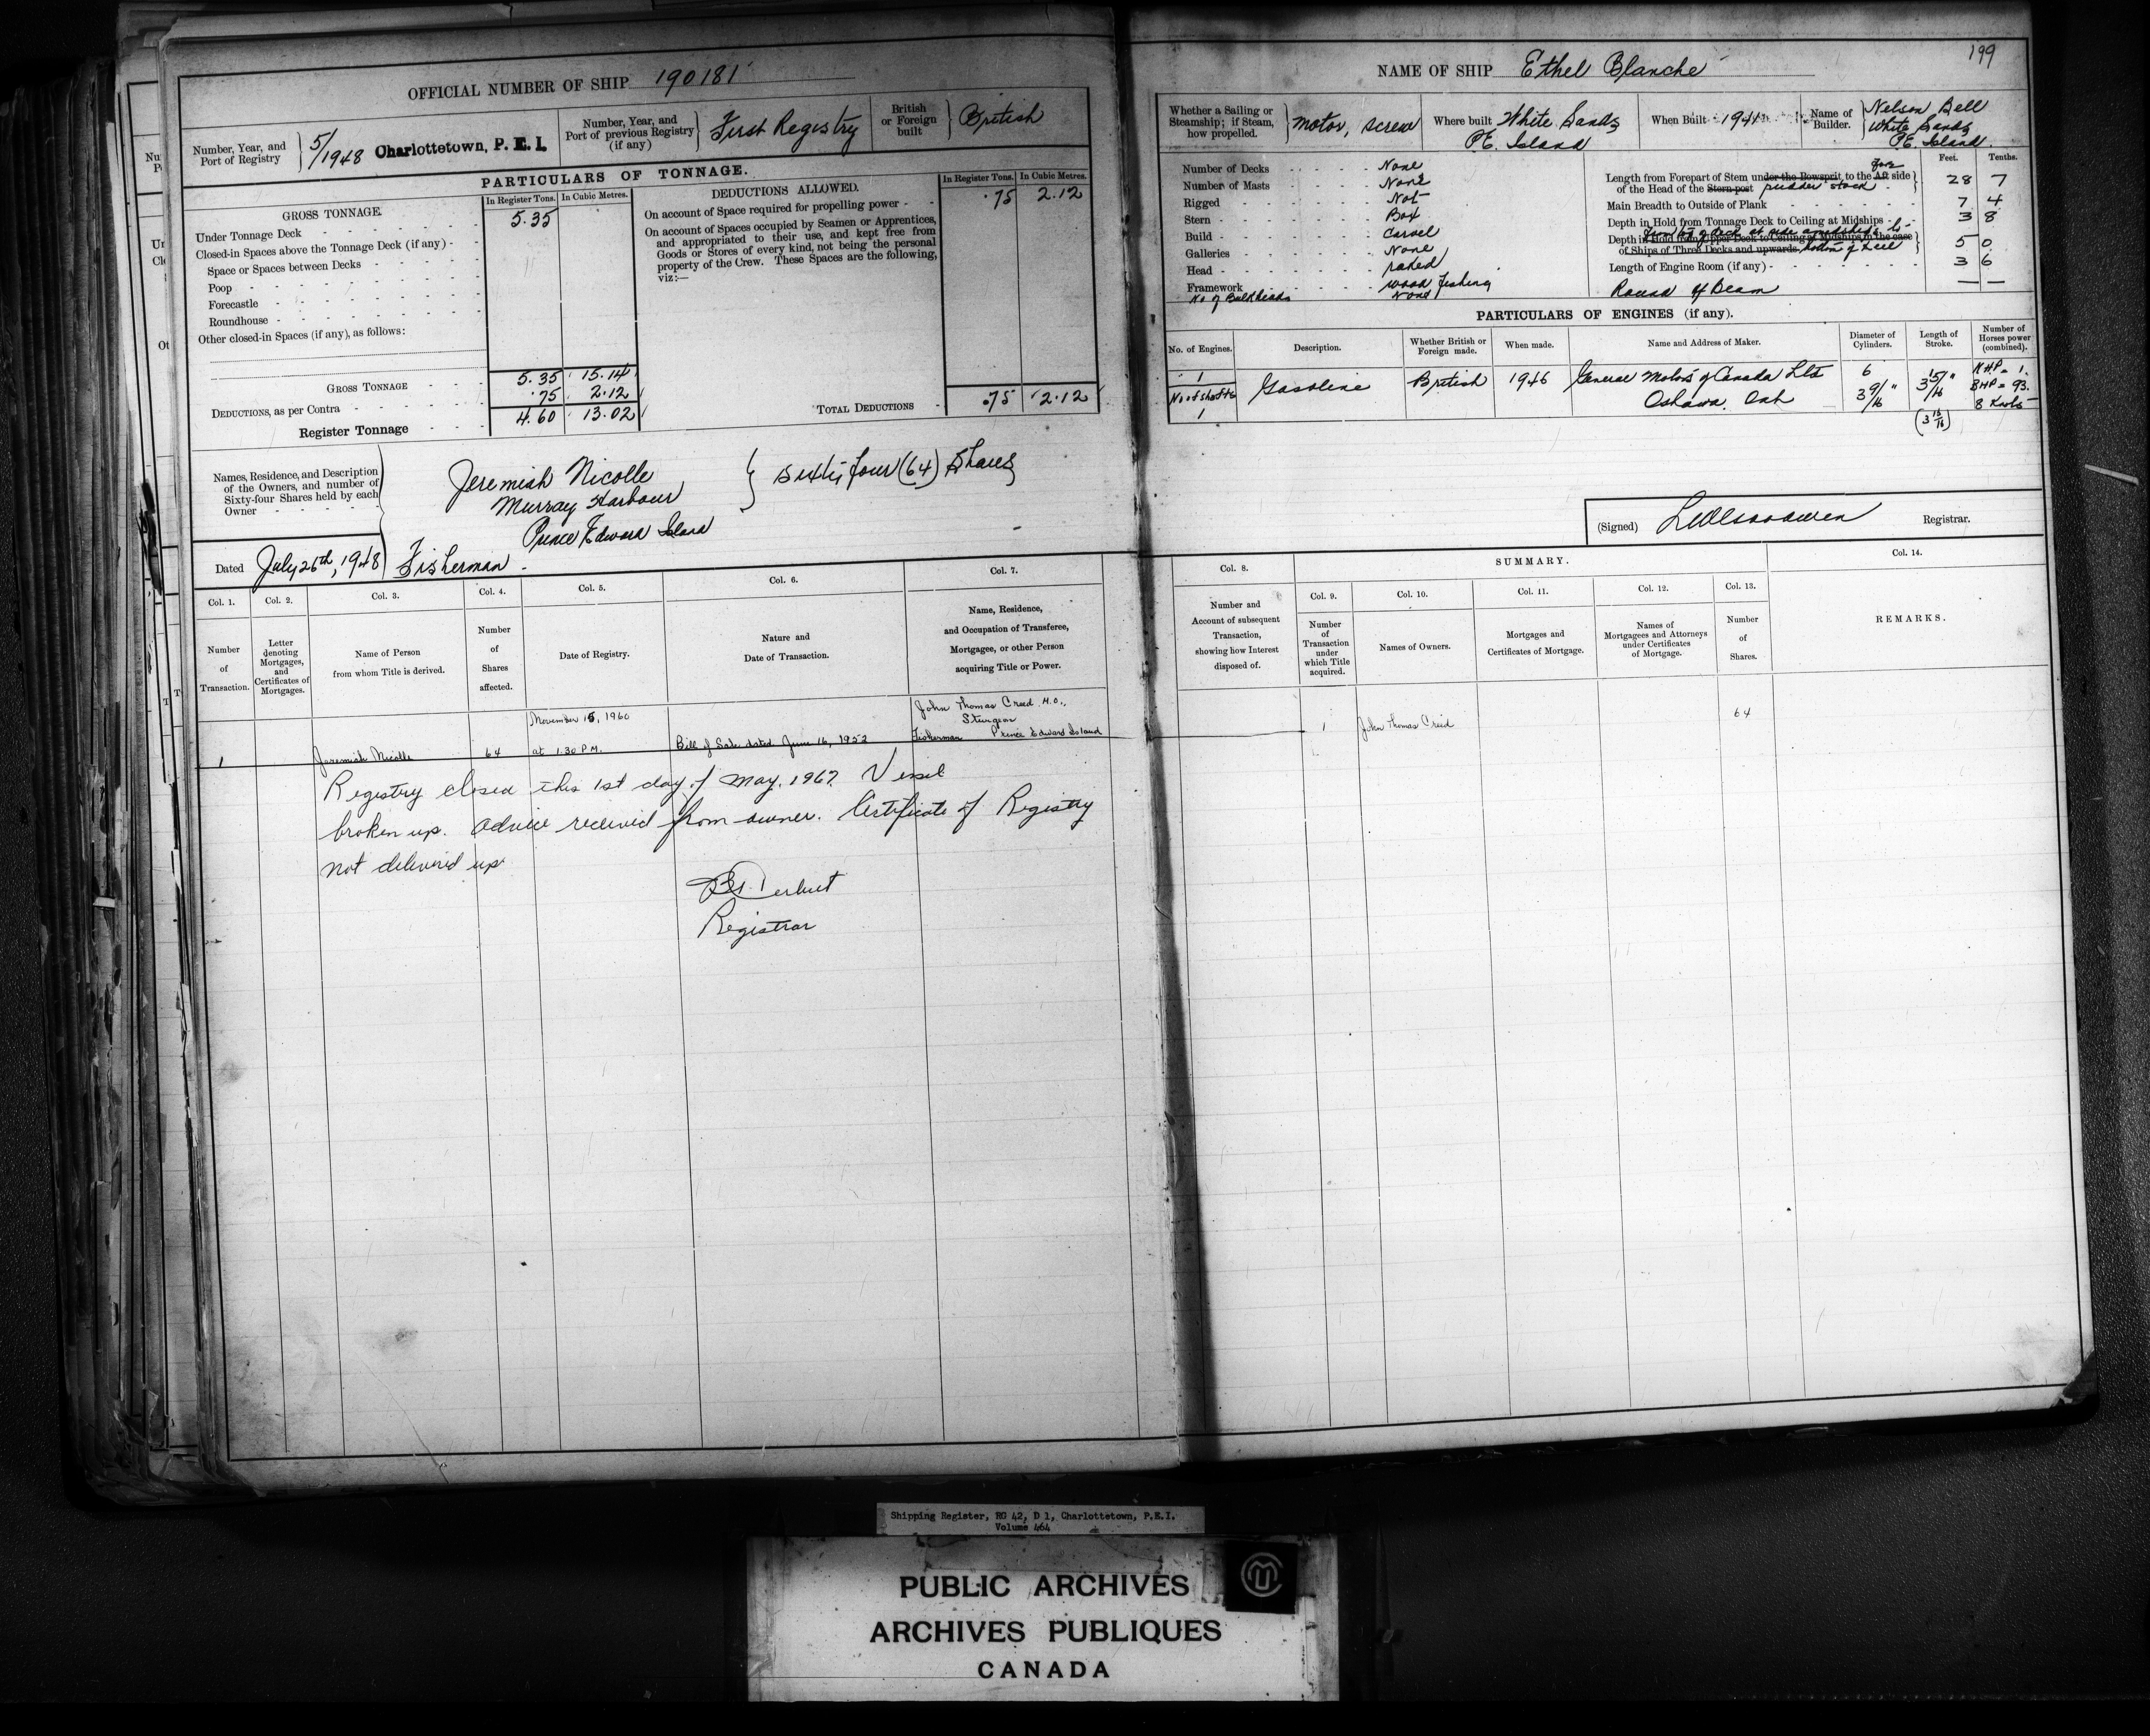 OFFICIAL NUMBER OF SHIP 190181
Number, Year, and Port of Registry
5/1948 Charlottetown, P. E. I.
Number, Year, and Port of previous Registry (if any)
First Registry
British or Foreign built
British
PARTICULARS OF TONNAGE.
GROSS TONNAGE.
In Register Tons. In Cubic Metres.
Under Tonnage Deck 5.35
Closed-in Spaces above the Tonnage Deck (if any)
Space or Spaces between Decks
Poop
Forecastle
Roundhouse
Other closed-in Spaces (if any), as follows:
GROSS TONNAGE 5.35 15.14
DEDUCTIONS, as per Contra .75 2.12
Register Tonnage 4.60 13.02
DEDUCTIONS ALLOWED.
In Register Tons. In Cubic Metres.
On account of Space required for propelling power .75 2.12
On account of Spaces occupied by Seamen or Apprentices,
and appropriated to their use, and kept free from
Goods or Stores of every kind, not being the personal
property of the Crew. These Spaces are the following,
viz:—
TOTAL DEDUCTIONS .75 2.12
Names, Residence, and Description
of the Owners, and number of
Sixty-four Shares held by each
Owner
Jeremiah Nicolle
Murray Harbour
Prince Edward Island
Sixty four (64) Shares
Dated July 26th, 1948
Fisherman
Col. 1. Col. 2. Col. 3. Col. 4. Col. 5. Col. 6. Col. 7.
Number of Transaction.
Letter denoting Mortgages, and Certificates of Mortgages.
Name of Person from whom Title is derived.
Number of Shares affected.
Date of Registry.
Nature and Date of Transaction.
Name, Residence, and Occupation of Transferee, Mortgagee, or other Person acquiring Title or Power.
1 Jeremiah Nicolle 64
November 15, 1960
at 1.30 P.M.
Bill of Sale dated June 16, 1952
John Thomas Creed
Sturgeon
Fisherman Prince Edward Island
Registry closed this 1st day of May, 1967. Vessel
broken up. Advice received from owner. Certificate of Registry
not delivered up
Registrar
199
NAME OF SHIP Ethel Blanche
Whether a Sailing or Steamship; if Steam, how propelled.
Motor, screw
Where built White Sands
P.E. Island
When Built
Name of Builder.
Nelson Bell
White Sands
P.E. Island.
Number of Decks None
Number of Masts None
Rigged Not
Stern Box
Build Carvel
Galleries None
Head raked
Framework wood fishing
No of Bulkheads None
Feet. Tenths.
Length from Forepart of Stem under the Bowsprit to the Aft Fore side
of the Head of the Stern-post rudder stock 28 7
Main Breadth to Outside of Plank 7 4
Depth in Hold from Tonnage Deck to Ceiling at Midships 3 8
from top of deck at side amidships to
Depth in Hold from Upper Deck to Ceiling at Midships in the case
of Ships of Three Decks and upwards bottom of keel 5 0
Length of Engine Room (if any) 3 6
Round of Beam — —
PARTICULARS OF ENGINES (if any).
No. of Engines. Description. Whether British or Foreign made. When made. Name and Address of Maker. Diameter of Cylinders. Length of Stroke. Number of Horses power (combined).
1
No of shafts
1
Gasoline British 1946
General Motors of Canada Ltd
Oshawa, Ont
6
3 9/16"
3 15/16"
(3 15/16)
NHP = 1.
BHP = 93.
8 Knots
(Signed)
Registrar.
Col. 8.
Number and Account of subsequent Transaction, showing how Interest disposed of.
SUMMARY.
Col. 9. Col. 10. Col. 11. Col. 12. Col. 13. Col. 14.
Number of Transaction under which Title acquired.
Names of Owners.
Mortgages and Certificates of Mortgage.
Names of Mortgagees and Attorneys under Certificates of Mortgage.
Number of Shares.
REMARKS.
1 John Thomas Creed 64
Shipping Register, RG 42, D 1, Charlottetown, P.E.I.
Volume 464
PUBLIC ARCHIVES
ARCHIVES PUBLIQUES
CANADA